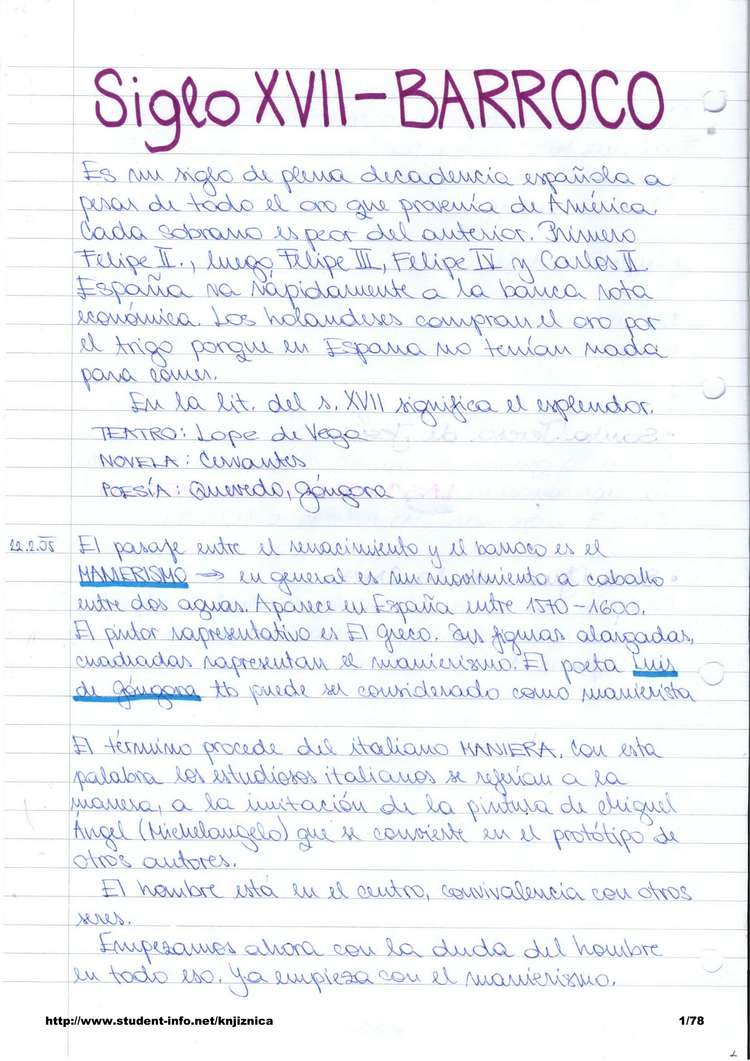 Siglo XVII - BARROCO
Es un siglo de plena decadencia española a
pesar de todo el oro que provenía de América.
Cada sobrano es peor del anterior. Primero
Felipe II., luego Felipe III, Felipe IV y Carlos II.
España va rápidamente a la banca rota
económica. Los holandeses compran el oro por
el trigo porque en España no tenían nada
para comer.
En la lit. del s. XVII significa el esplendor.
TEATRO: Lope de Vega
NOVELA: Cervantes
POESÍA: Quevedo, Góngora
22.2.05 El pasaje entre el renacimiento y el barroco es el
MANIERISMO → en general es un movimiento a caballo
entre dos aguas. Aparece en España entre 1570-1600.
El pintor rapresentativo es El Greco. Sus figuras alargadas,
cuadradas rapresentan el manierismo. El poeta Luis
de Góngora tb puede ser considerado como manierista
El término procede del italiano MANIERA. Con esta
palabra los estudiosos italianos se referían a la
manera, a la imitación de la pintura de Miguel
Ángel (Michelangelo) que se convierte en el protótipo de
otros autores.
El hombre está en el centro, convivalencia con otros
seres.
Empezamos ahora con la duda del hombre
en todo eso. Ya empieza con el manierismo.
http://www.student-info.net/knjiznica 1/78